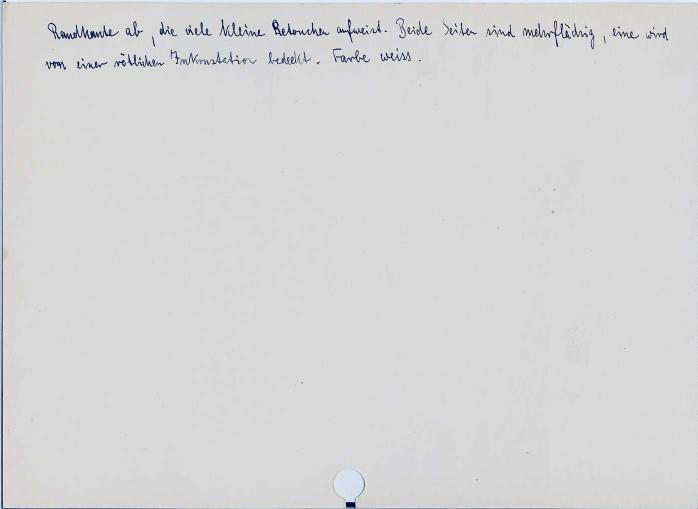 Randkante ab, die viele kleine Retouchen aufweist. Beide Seiten sind mehrflächig, eine wird
von einer rötlichen Inkrustation bedeckt. Farbe weiss.